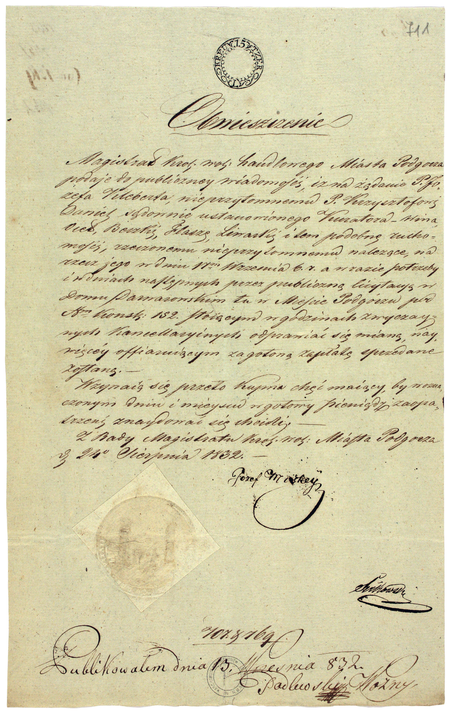 711
Obwieszczenie
Magistrat Król. wol. handlowego Miasta Podgorza
podaje do publiczney wiadomości, iż na żądanie P. Jó-
zefa nieprzytomnemu P. Krzysztofowi
Daniel sądownie ustanowionego Kuratora
Beczki, Flaszę, i tem podobne rucho-
mości, rzeczonemu nieprzytomnemu należące, na
rzecz jego w dniu 17. Wrzesnia b. r. a w razie potrzeby
i w dniach następnych przez publiczną licytacyą w
Domu tu w Mieście Podgorzu pod
Nrm Konsk. 152 stoiącym w godzinach zwyczay-
nych Kancellaryinych odprawiać się mianą, nay-
więcey offiaruiącym za gotową zapłatę sprzedane
zostaną. —
Wzywaią się przeto kupna chęć maiący, by w ozna-
czonym dniu i mieyscu w gotowy pieniądz zaopa-
trzeni znaydować się chcieli. —
Z Rady Magistratu król. wol. Miasta Podgorza
d. 24o Sierpnia 1832. —
Józef
Publikowałem dnia 13 Wrzesnia 832.
Padlewski Woźny